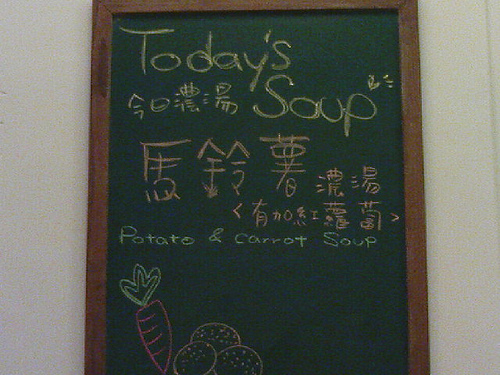 Today's
今日濃湯 Soup
馬鈴薯 濃湯
<有加紅蘿蔔>
Potato & Carrot Soup